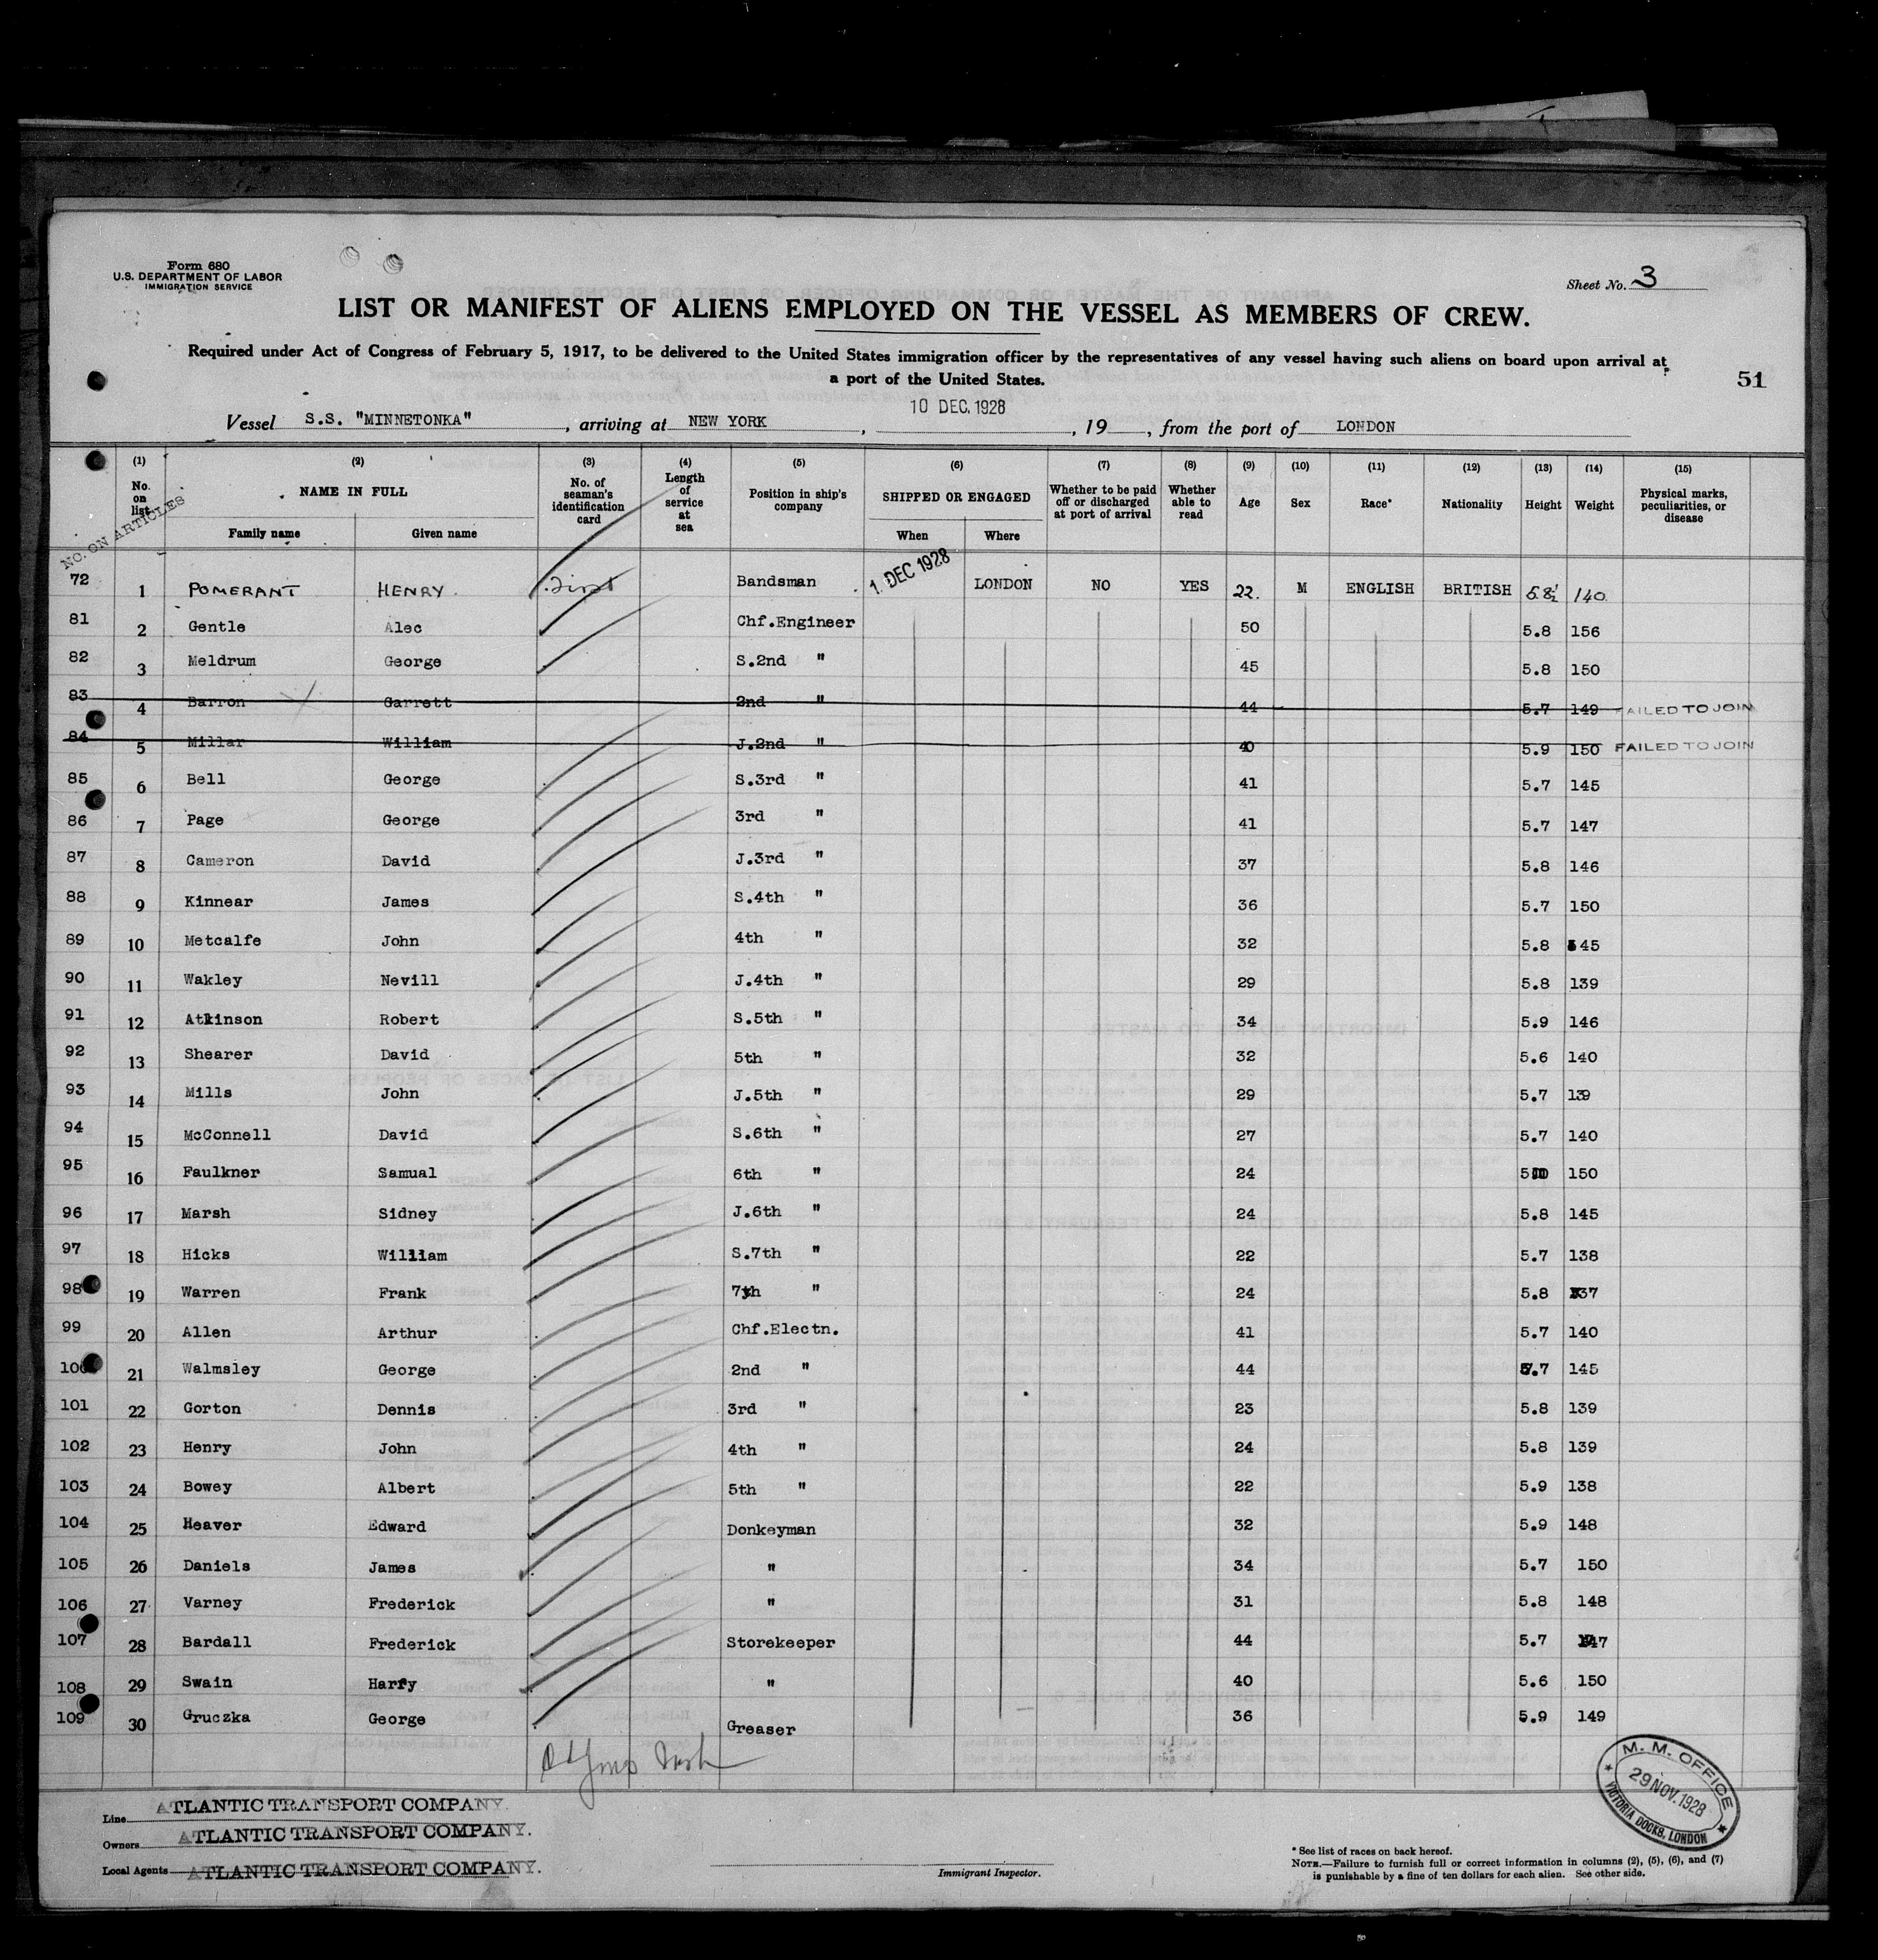 Form 680
U.S. DEPARTMENT OF LABOR
IMMIGRATION SERVICE
Sheet No. 3
LIST OR MANIFEST OF ALIENS EMPLOYED ON THE VESSEL AS MEMBERS OF CREW.
Required under Act of Congress of February 5, 1917, to be delivered to the United States immigration officer by the representatives of any vessel having such aliens on board upon arrival at
a port of the United States.
51
10 DEC. 1928
Vessel S.S. "MINNETONKA", arriving at NEW YORK, , 19 , from the port of LONDON
(1) (2) (3) (4) (5) (6) (7) (8) (9) (10) (11) (12) (13) (14) (15)
No. on list NAME IN FULL No. of seaman's identification card Length of service at sea Position in ship's company SHIPPED OR ENGAGED Whether to be paid off or discharged at port of arrival Whether able to read Age Sex Race* Nationality Height Weight Physical marks, peculiarities, or disease
Family name Given name When Where
NO. ON ARTICLES
72 1 POMERANT HENRY. First Bandsman 1. DEC 1928 LONDON NO YES 22. M ENGLISH BRITISH 5 8½ 140
81 2 Gentle Alec Chf.Engineer 50 5.8 156
82 3 Meldrum George S.2nd " 45 5.8 150
83 4 Barron Garrett 2nd " 44 5.7 149 FAILED TO JOIN
84 5 Millar William J.2nd " 40 5.9 150 FAILED TO JOIN
85 6 Bell George S.3rd " 41 5.7 145
86 7 Page George 3rd " 41 5.7 147
87 8 Cameron David J.3rd " 37 5.8 146
88 9 Kinnear James S.4th " 36 5.7 150
89 10 Metcalfe John 4th " 32 5.8 145
90 11 Wakley Nevill J.4th " 29 5.8 139
91 12 Atkinson Robert S.5th " 34 5.9 146
92 13 Shearer David 5th " 32 5.6 140
93 14 Mills John J.5th " 29 5.7 139
94 15 McConnell David S.6th " 27 5.7 140
95 16 Faulkner Samual 6th " 24 150
96 17 Marsh Sidney J.6th " 24 5.8 145
97 18 Hicks William S.7th " 22 5.7 138
98 19 Warren Frank 7th " 24 5.8 137
99 20 Allen Arthur Chf.Electn. 41 5.7 140
100 21 Walmsley George 2nd " 44 5.7 145
101 22 Gorton Dennis 3rd " 23 5.8 139
102 23 Henry John 4th " 24 5.8 139
103 24 Bowey Albert 5th " 22 5.9 138
104 25 Heaver Edward Donkeyman 32 5.9 148
105 26 Daniels James " 34 5.7 150
106 27 Varney Frederick " 31 5.8 148
107 28 Bardall Frederick Storekeeper 44 5.7 147
108 29 Swain Harry " 40 5.6 150
109 30 Gruczka George Greaser 36 5.9 149
M. M. OFFICE
29 NOV. 1928
VICTORIA DOCKS, LONDON
Line ATLANTIC TRANSPORT COMPANY.
Owners ATLANTIC TRANSPORT COMPANY.
Local Agents ATLANTIC TRANSPORT COMPANY.
Immigrant Inspector.
* See list of races on back hereof.
NOTE.—Failure to furnish full or correct information in columns (2), (5), (6), and (7)
is punishable by a fine of ten dollars for each alien. See other side.